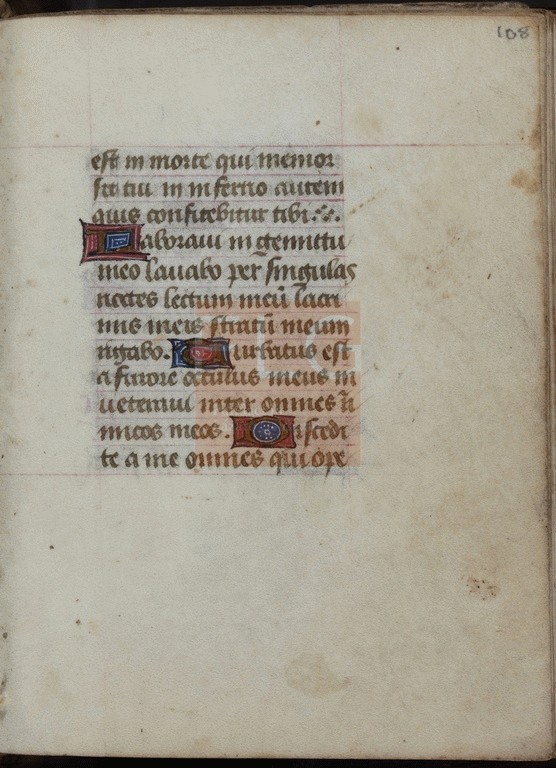 108
est in morte qui memor
sit tui in inferno autem
quis confitebitur tibi
Laboraui in gemittu
meo lauabo per singulas
noctes lectum meū lacri
mis meis stratū meum
rigabo. Turbatus est
a furore occulus meus in
ueteraui inter omnes
micos meos. Discedi
te a me omnes qui ope